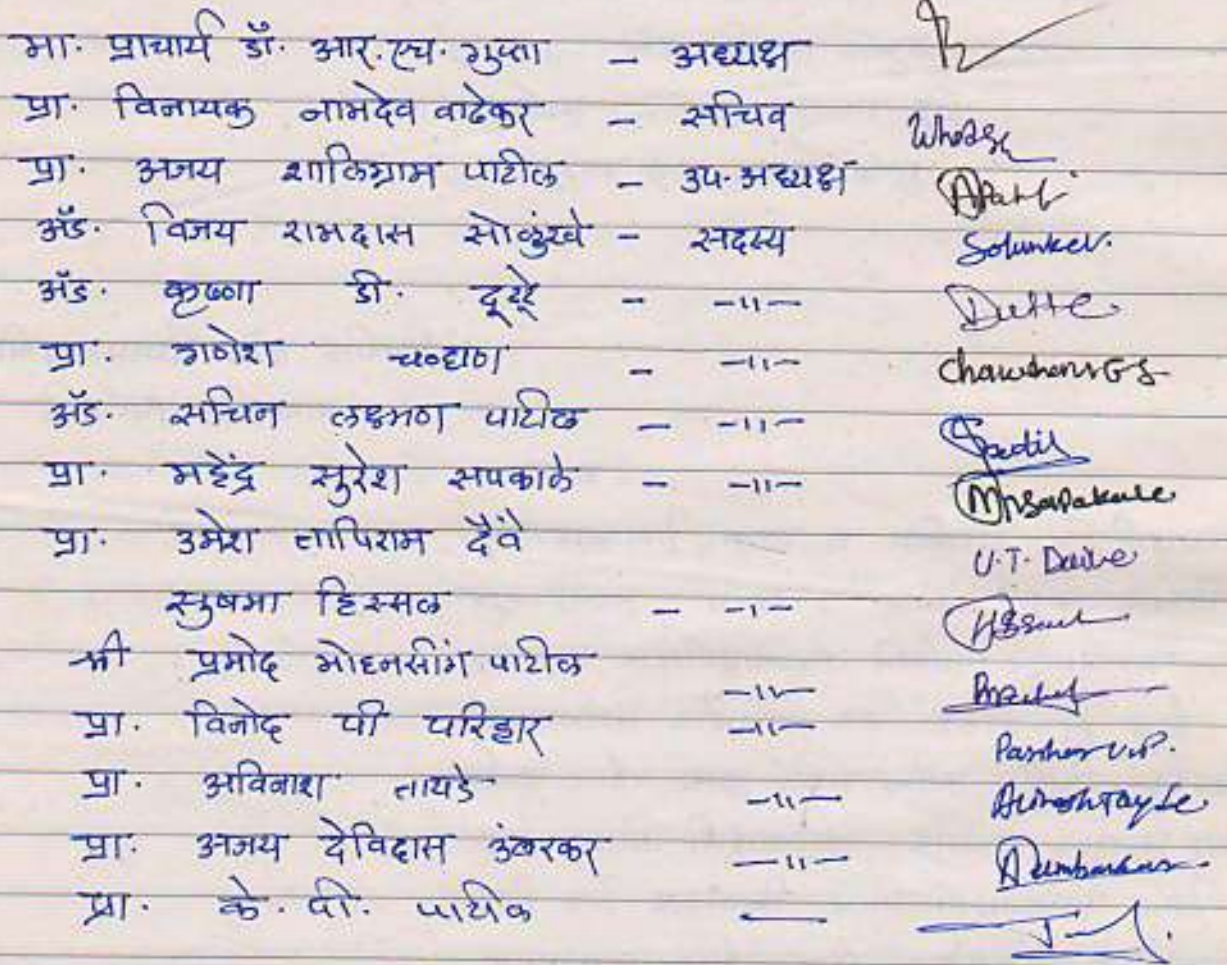 मा. प्राचार्य डॉ. आर. एच. गुप्ता - अध्यक्ष
प्रा. विनायक नामदेव वाढेकर - सचिव
प्रा. अजय शालिग्राम पाटील - उप. अध्यक्ष
अ‍ॅड. विजय रामदास सोळुंखे - सदस्य Solunkev.
अ‍ॅड. कृष्णा डी. दूट्टे - -11- Dutte
प्रा. गणेश चव्हाण - -11- Chawhans G S
अ‍ॅड. सचिन लक्ष्मण पाटील - -11-
प्रा. महेंद्र सुरेश सपकाळे - -11-
प्रा. उमेश तापिराम दैवे U.T. Daive
सुषमा हिस्सल - -1-
श्री प्रमोद मोहनसींग पाटील -11-
प्रा. विनोद पी परिहार -11- Parihar V.P.
प्रा. अविनाश तायडे -11-
प्रा. अजय देविदास उंबरकर -11-
प्रा. के. पी. पाटील -